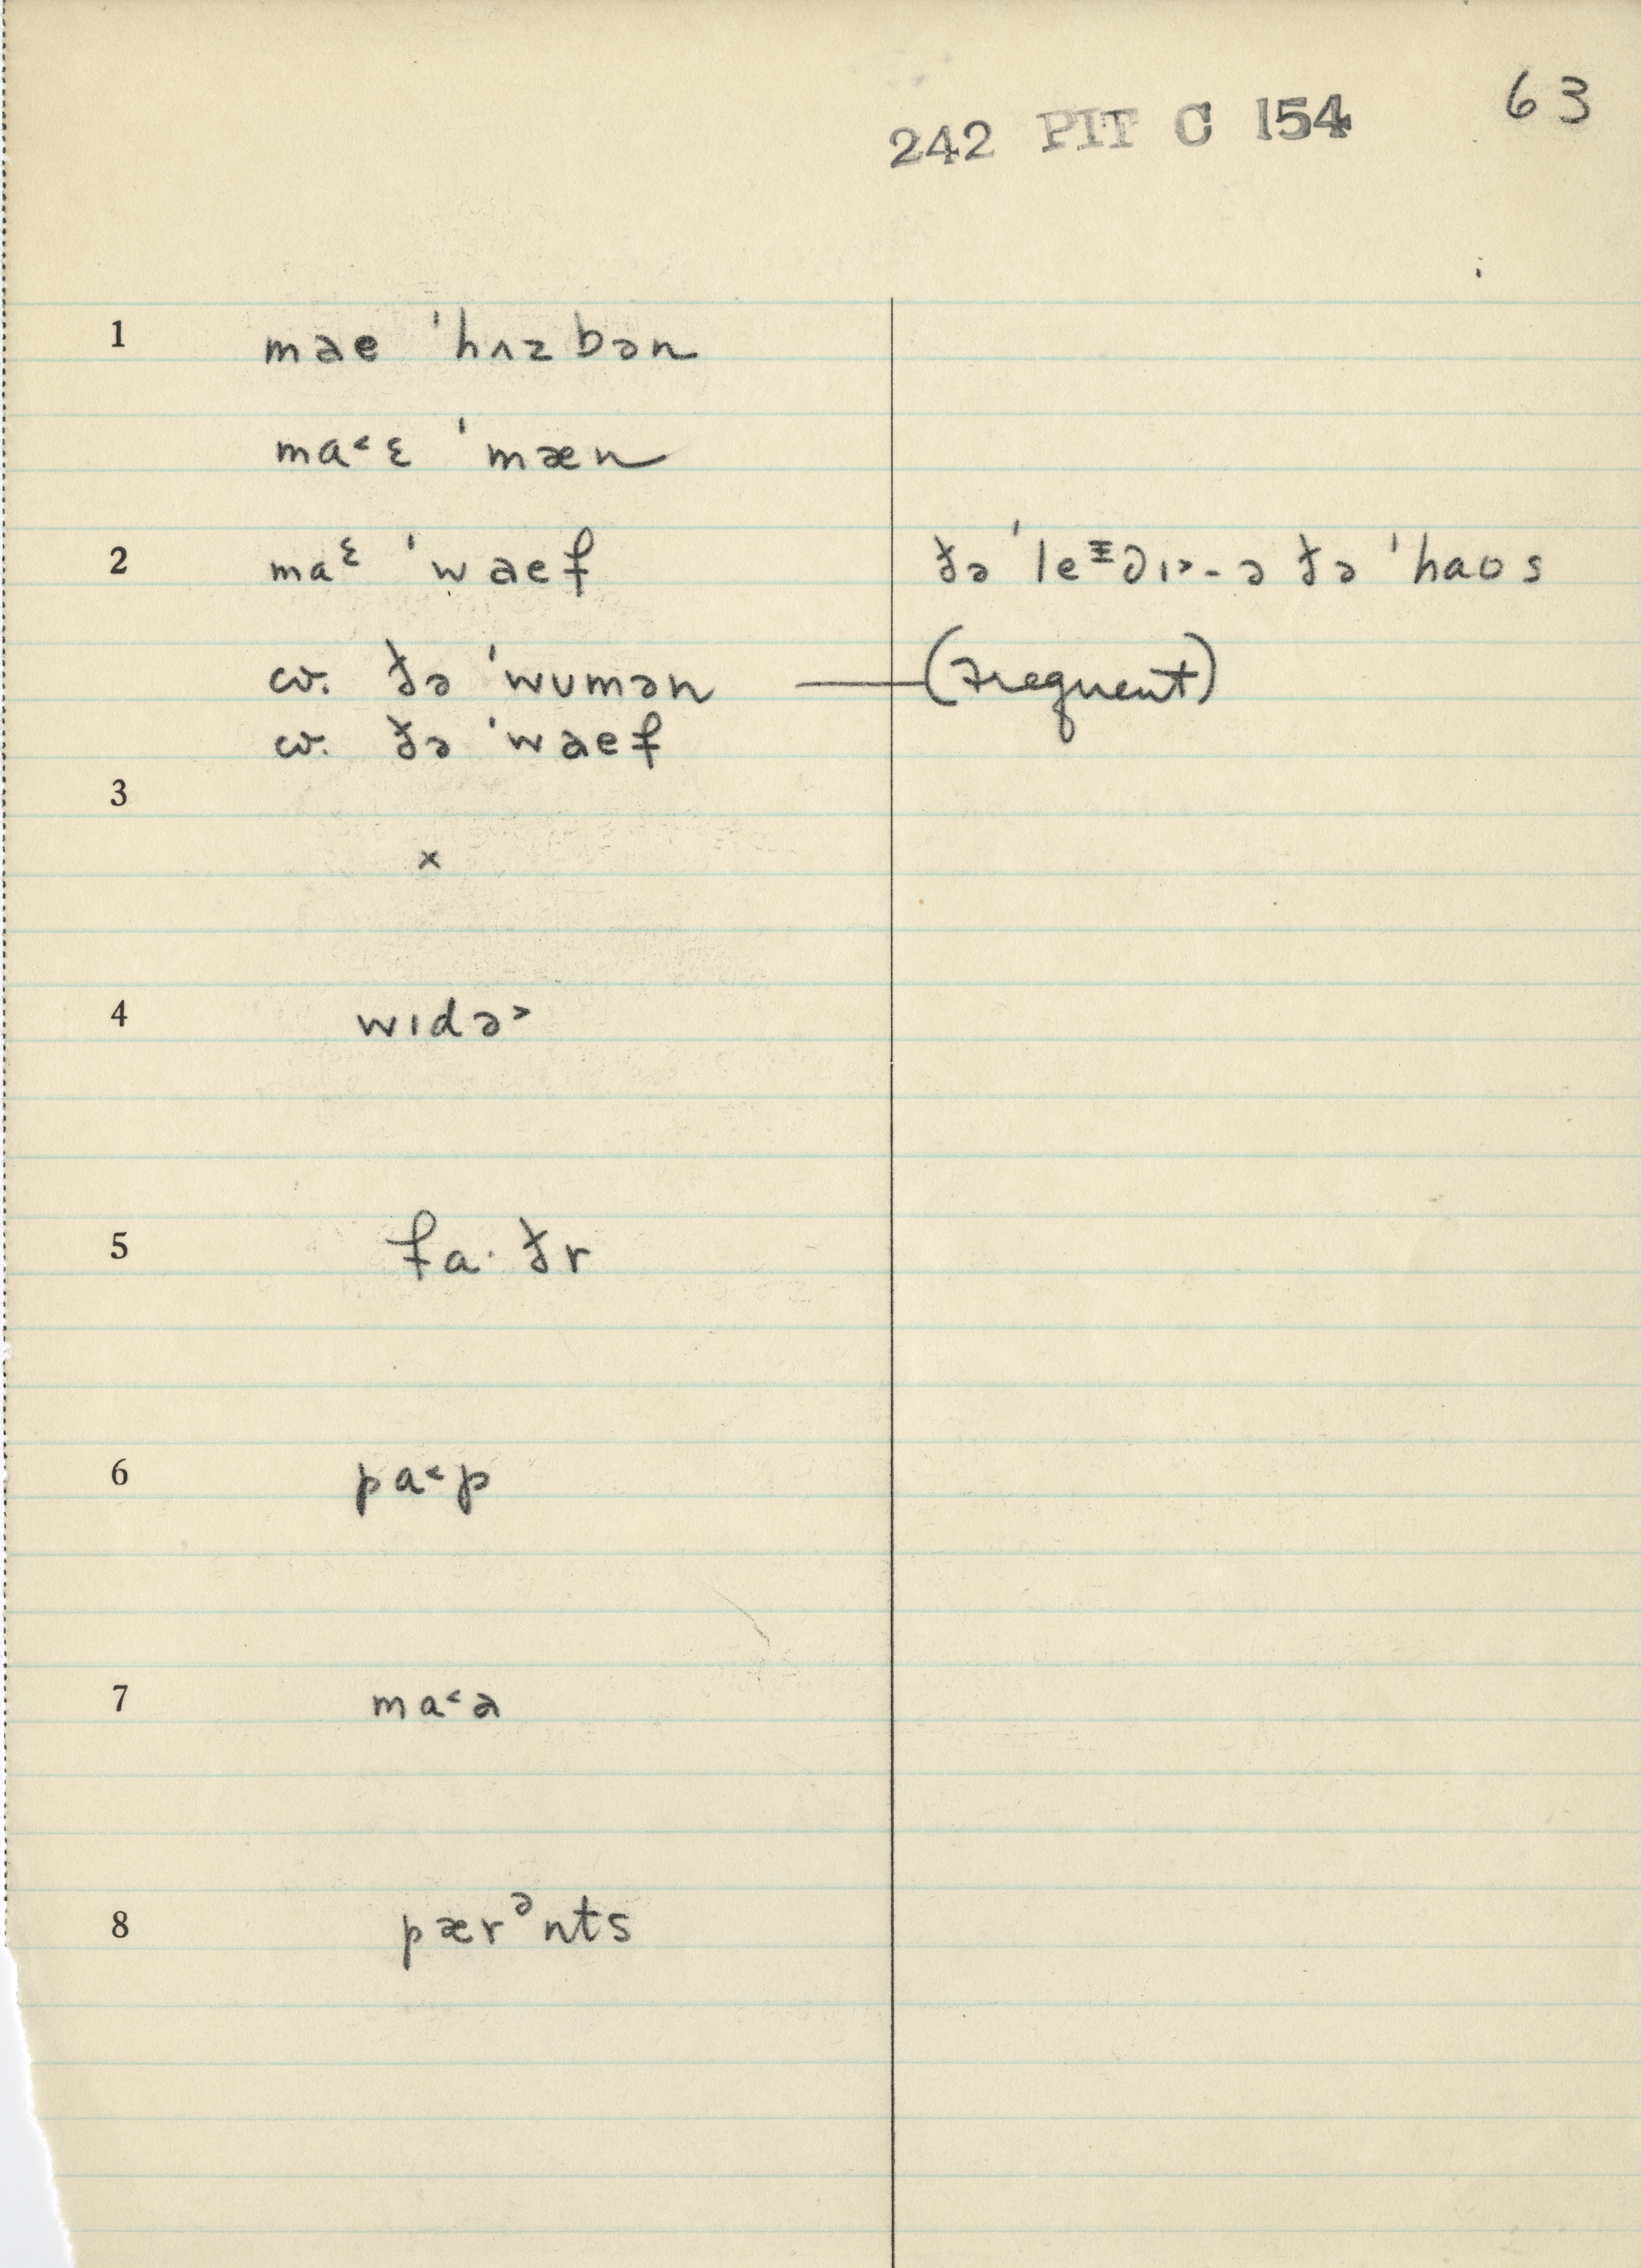 242 PIT C 154 63
1 mae ˈhʌzbən
ma˂ɛ ˈmæn
2 maᵋ ˈwaef ðə ˈle
cv. ðə ˈwumən —(frequent)
cv. ðə ˈwaef
3
x
4 wɪdə˃
5 fa·ðr
6 pa˂p
7 ma˂a
8 pærᵊnts